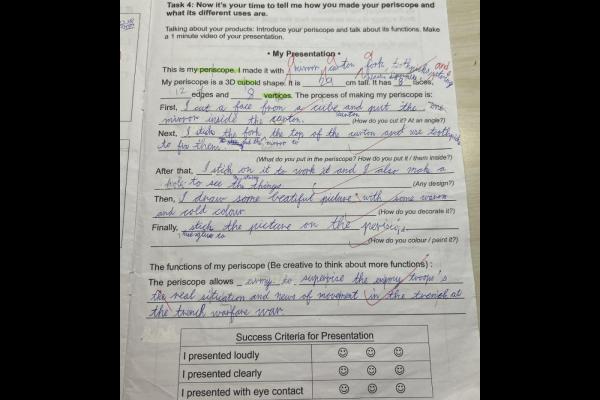 Task 4: Now it's your time to tell me how you made your periscope and
what its different uses are.
Talking about your products: Introduce your periscope and talk about its functions. Make
a 1 minute video of your presentation.
• My Presentation •
This is my periscope. I made it with mirror carton fork toothpicks and string
My periscope is a 3D cuboid shape. It is 29 cm tall. It has faces,
12 edges and 8 vertices. The process of making my periscope is:
First, I cut a face from a cube and put the one
mirror inside the carton. (How do you cut it? At an angle?)
Next, I stick the fork the top of the carton and use
to fix them the mirror to
(What do you put in the periscope? How do you put it / them inside?)
After that, I stick on it to work it and I also make a
hole to see the things (Any design?)
Then, I draw some beatiful picture with some warm
and cold colour (How do you decorate it?)
Finally, stick the picture on the
(How do you colour / paint it?)
The functions of my periscope (Be creative to think about more functions) :
The periscope allows army to supervise the enemy troops's
the real situation and news of movement in the trench at
the trench warfare war
Success Criteria for Presentation
I presented loudly
I presented clearly
I presented with eye contact